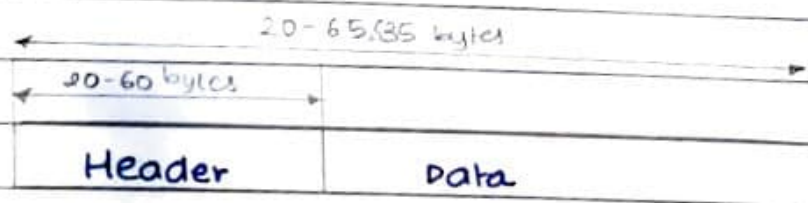 20-65,535 bytes
20-60 bytes
Header Data